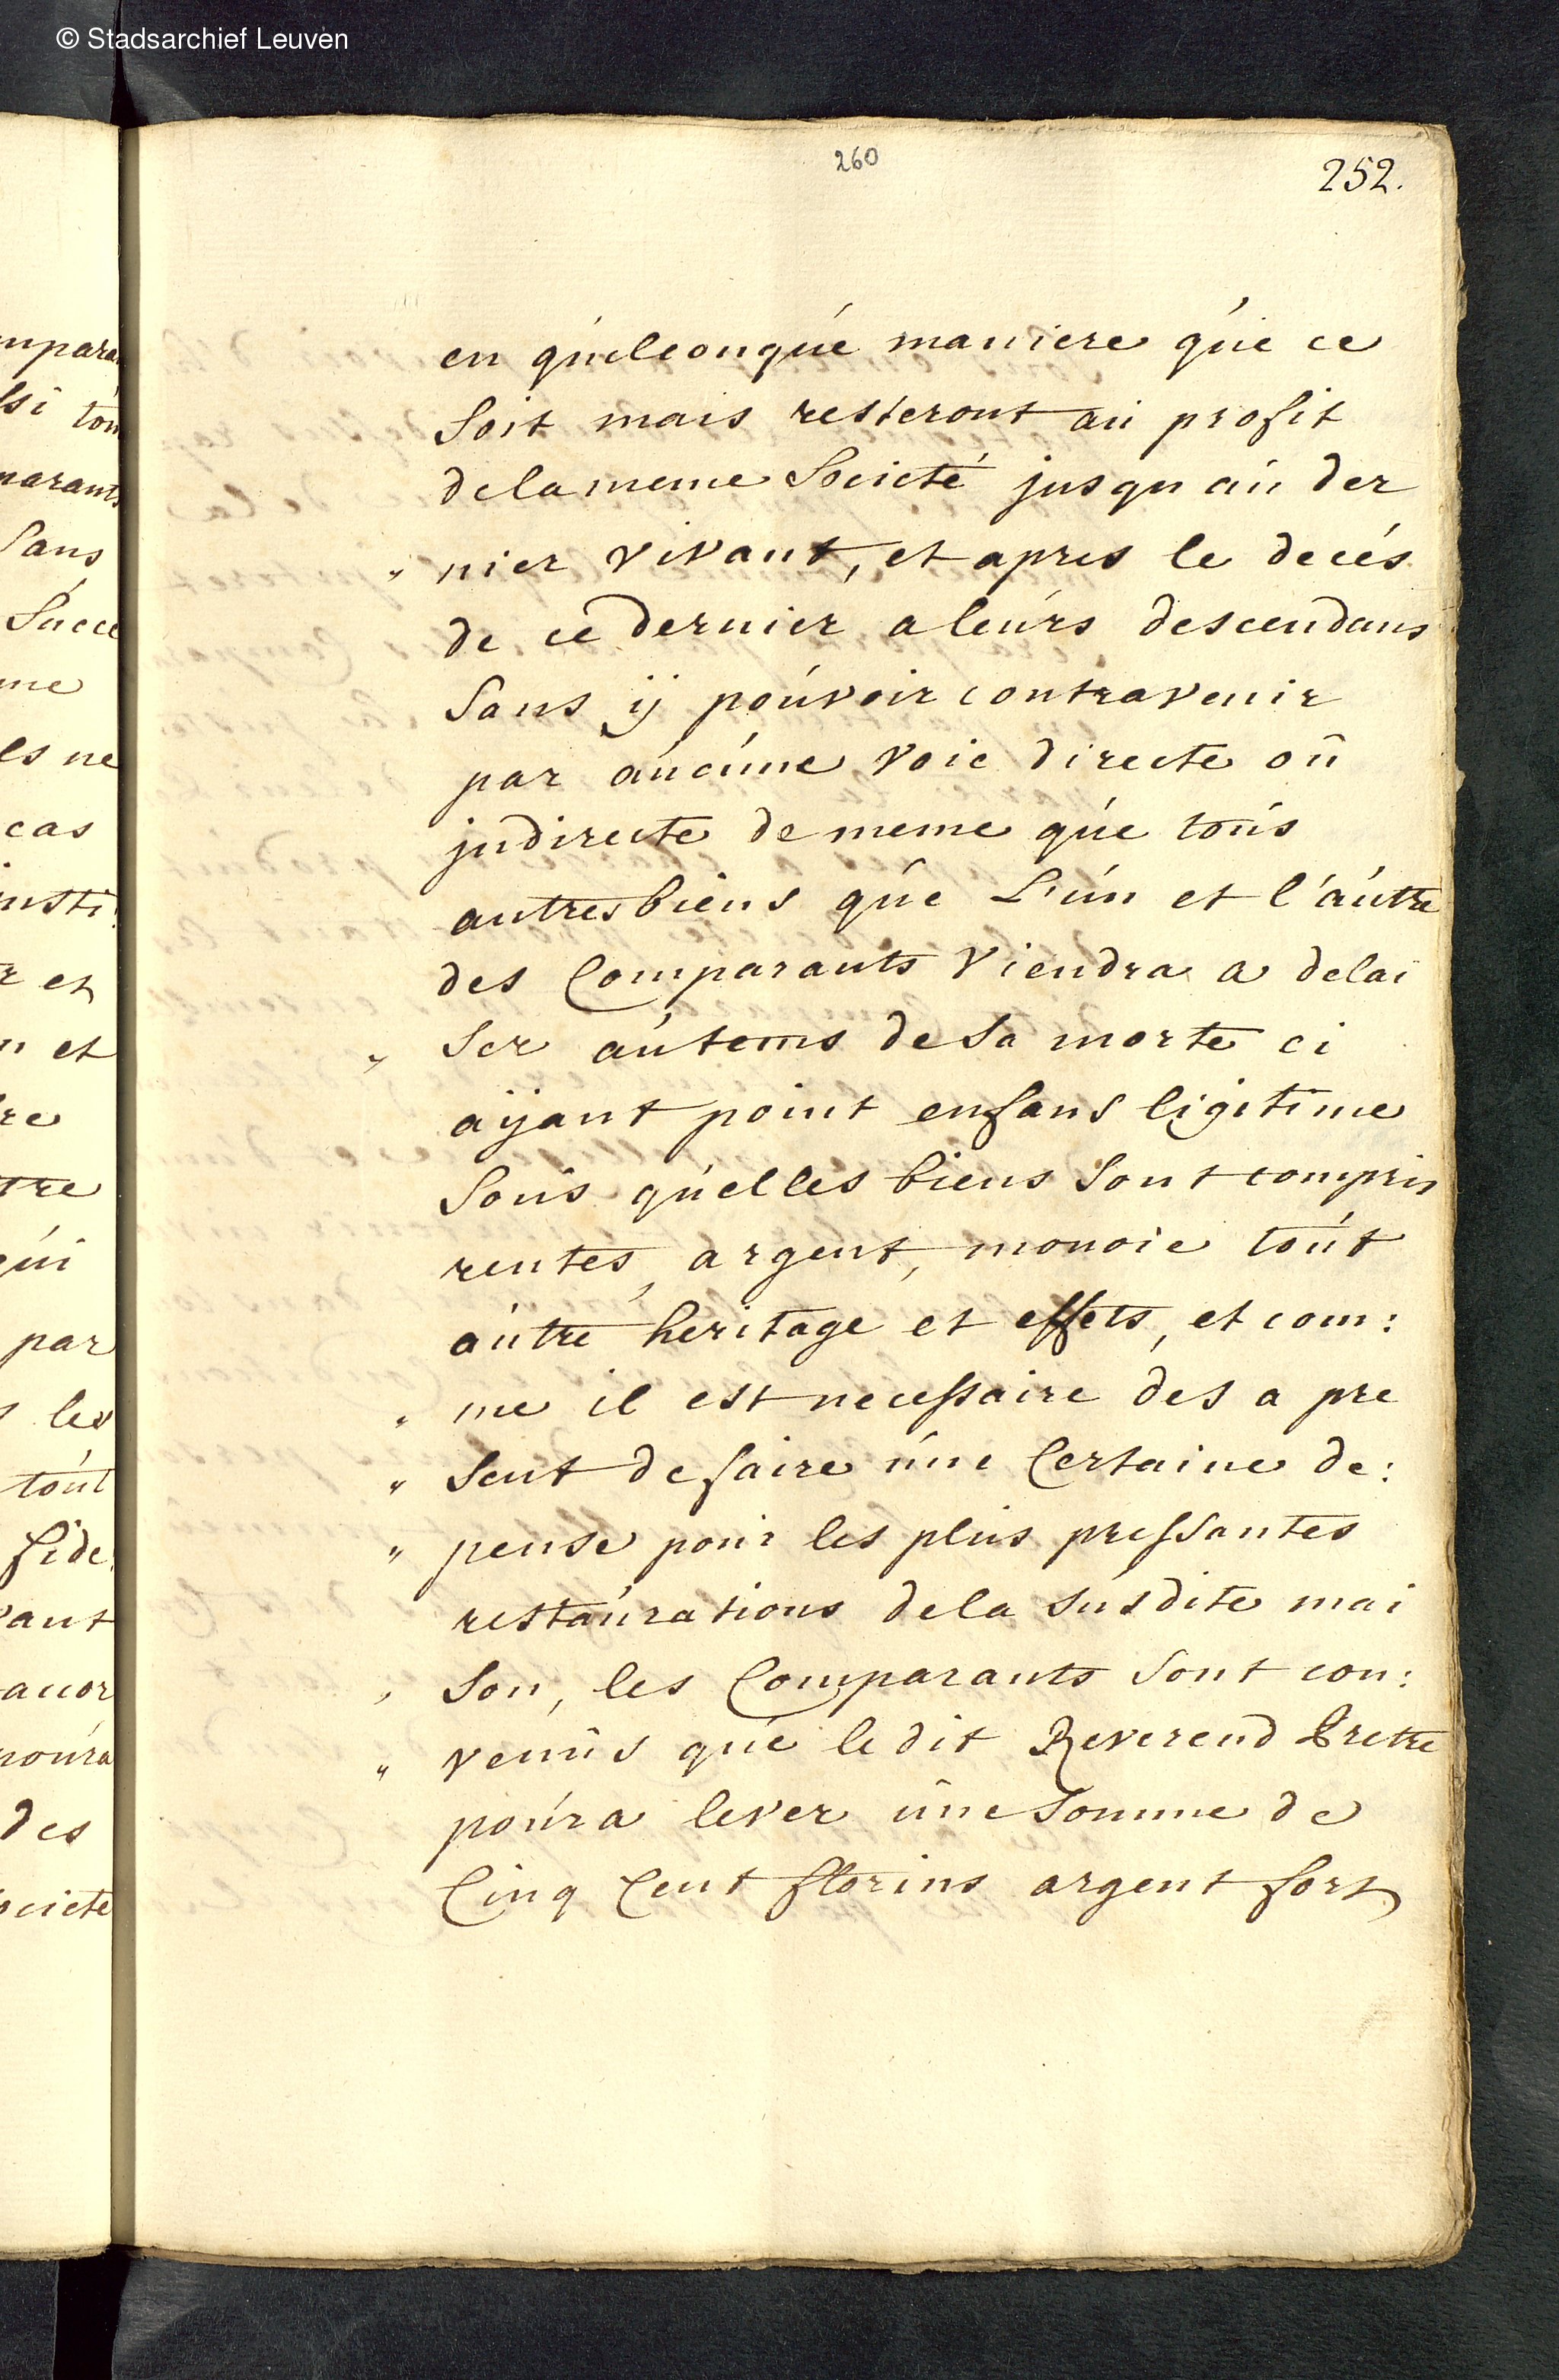 © Stadsarchief Leuven
260
252.
en quelconque maniere que ce
soit mais resteront au profit
dela meme Societé jusqu au der
" nier vivant, et apres le decés
de ce dernier a leurs descendans
sans ij pouvoir contravenir
par aucune voie directe ou
jndirecte de meme que tous
autres biens que L'un et l'autre
des Comparants viendra a delai
" ser au tems de sa morte ci
aijant point enfans ligitime
sous quelles biens sont compris
rentes, argent, monoie tout
autre heritage et effets, et com:
" me il est necessaire des a pre
" sent de faire une Certaine de:
" pense pour les plus pressantes
restaurations dela susdite mai
" son, les Comparants sont con:
" venus que le dit Reverend Pretre
poura lever une somme de
Cinq Cent florins argent fort
mpara
si tou
parants
sans
Succe
me
ls ne
cas
insti:
r et
n et
re
tre
qui
par
s les
tout
fide:
vant
accor
poura
des
ociete